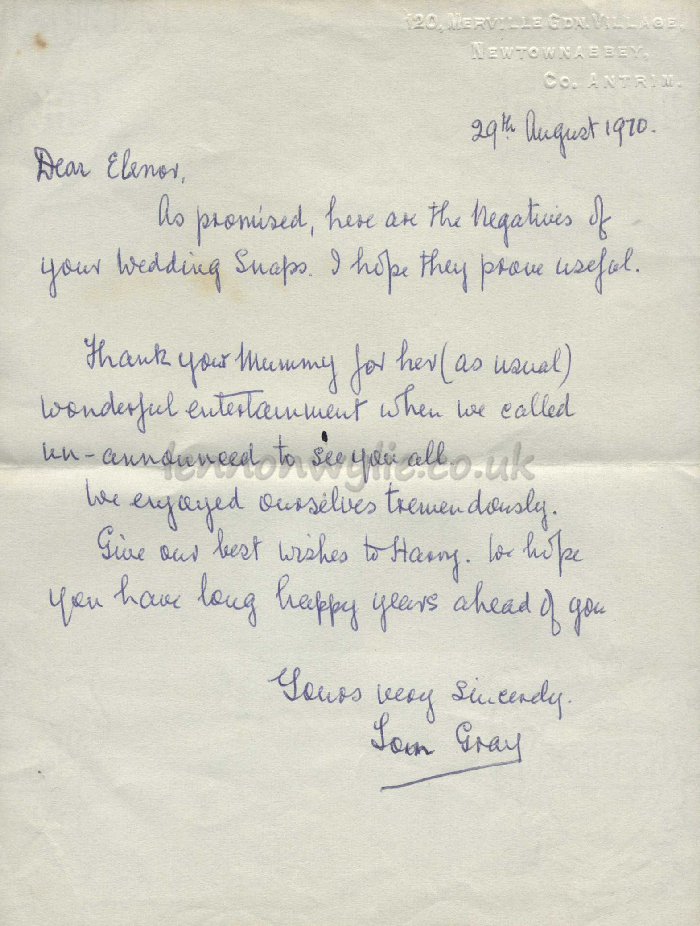 120, MERVILLE GDN. VILLAGE,
NEWTOWNABBEY,
CO. ANTRIM.
29th August 1970.
Dear Elenor,
As promised, here are the Negatives of
your Wedding Snaps. I hope they prove useful.
Thank your Mummy for her (as usual)
wonderful entertainment when we called
un-announced to see you all.
lennonwylie.co.uk
We enjoyed ourselves tremendously.
Give our best wishes to Harry. We hope
you have long happy years ahead of you
Yours very sincerely.
Tom Gray